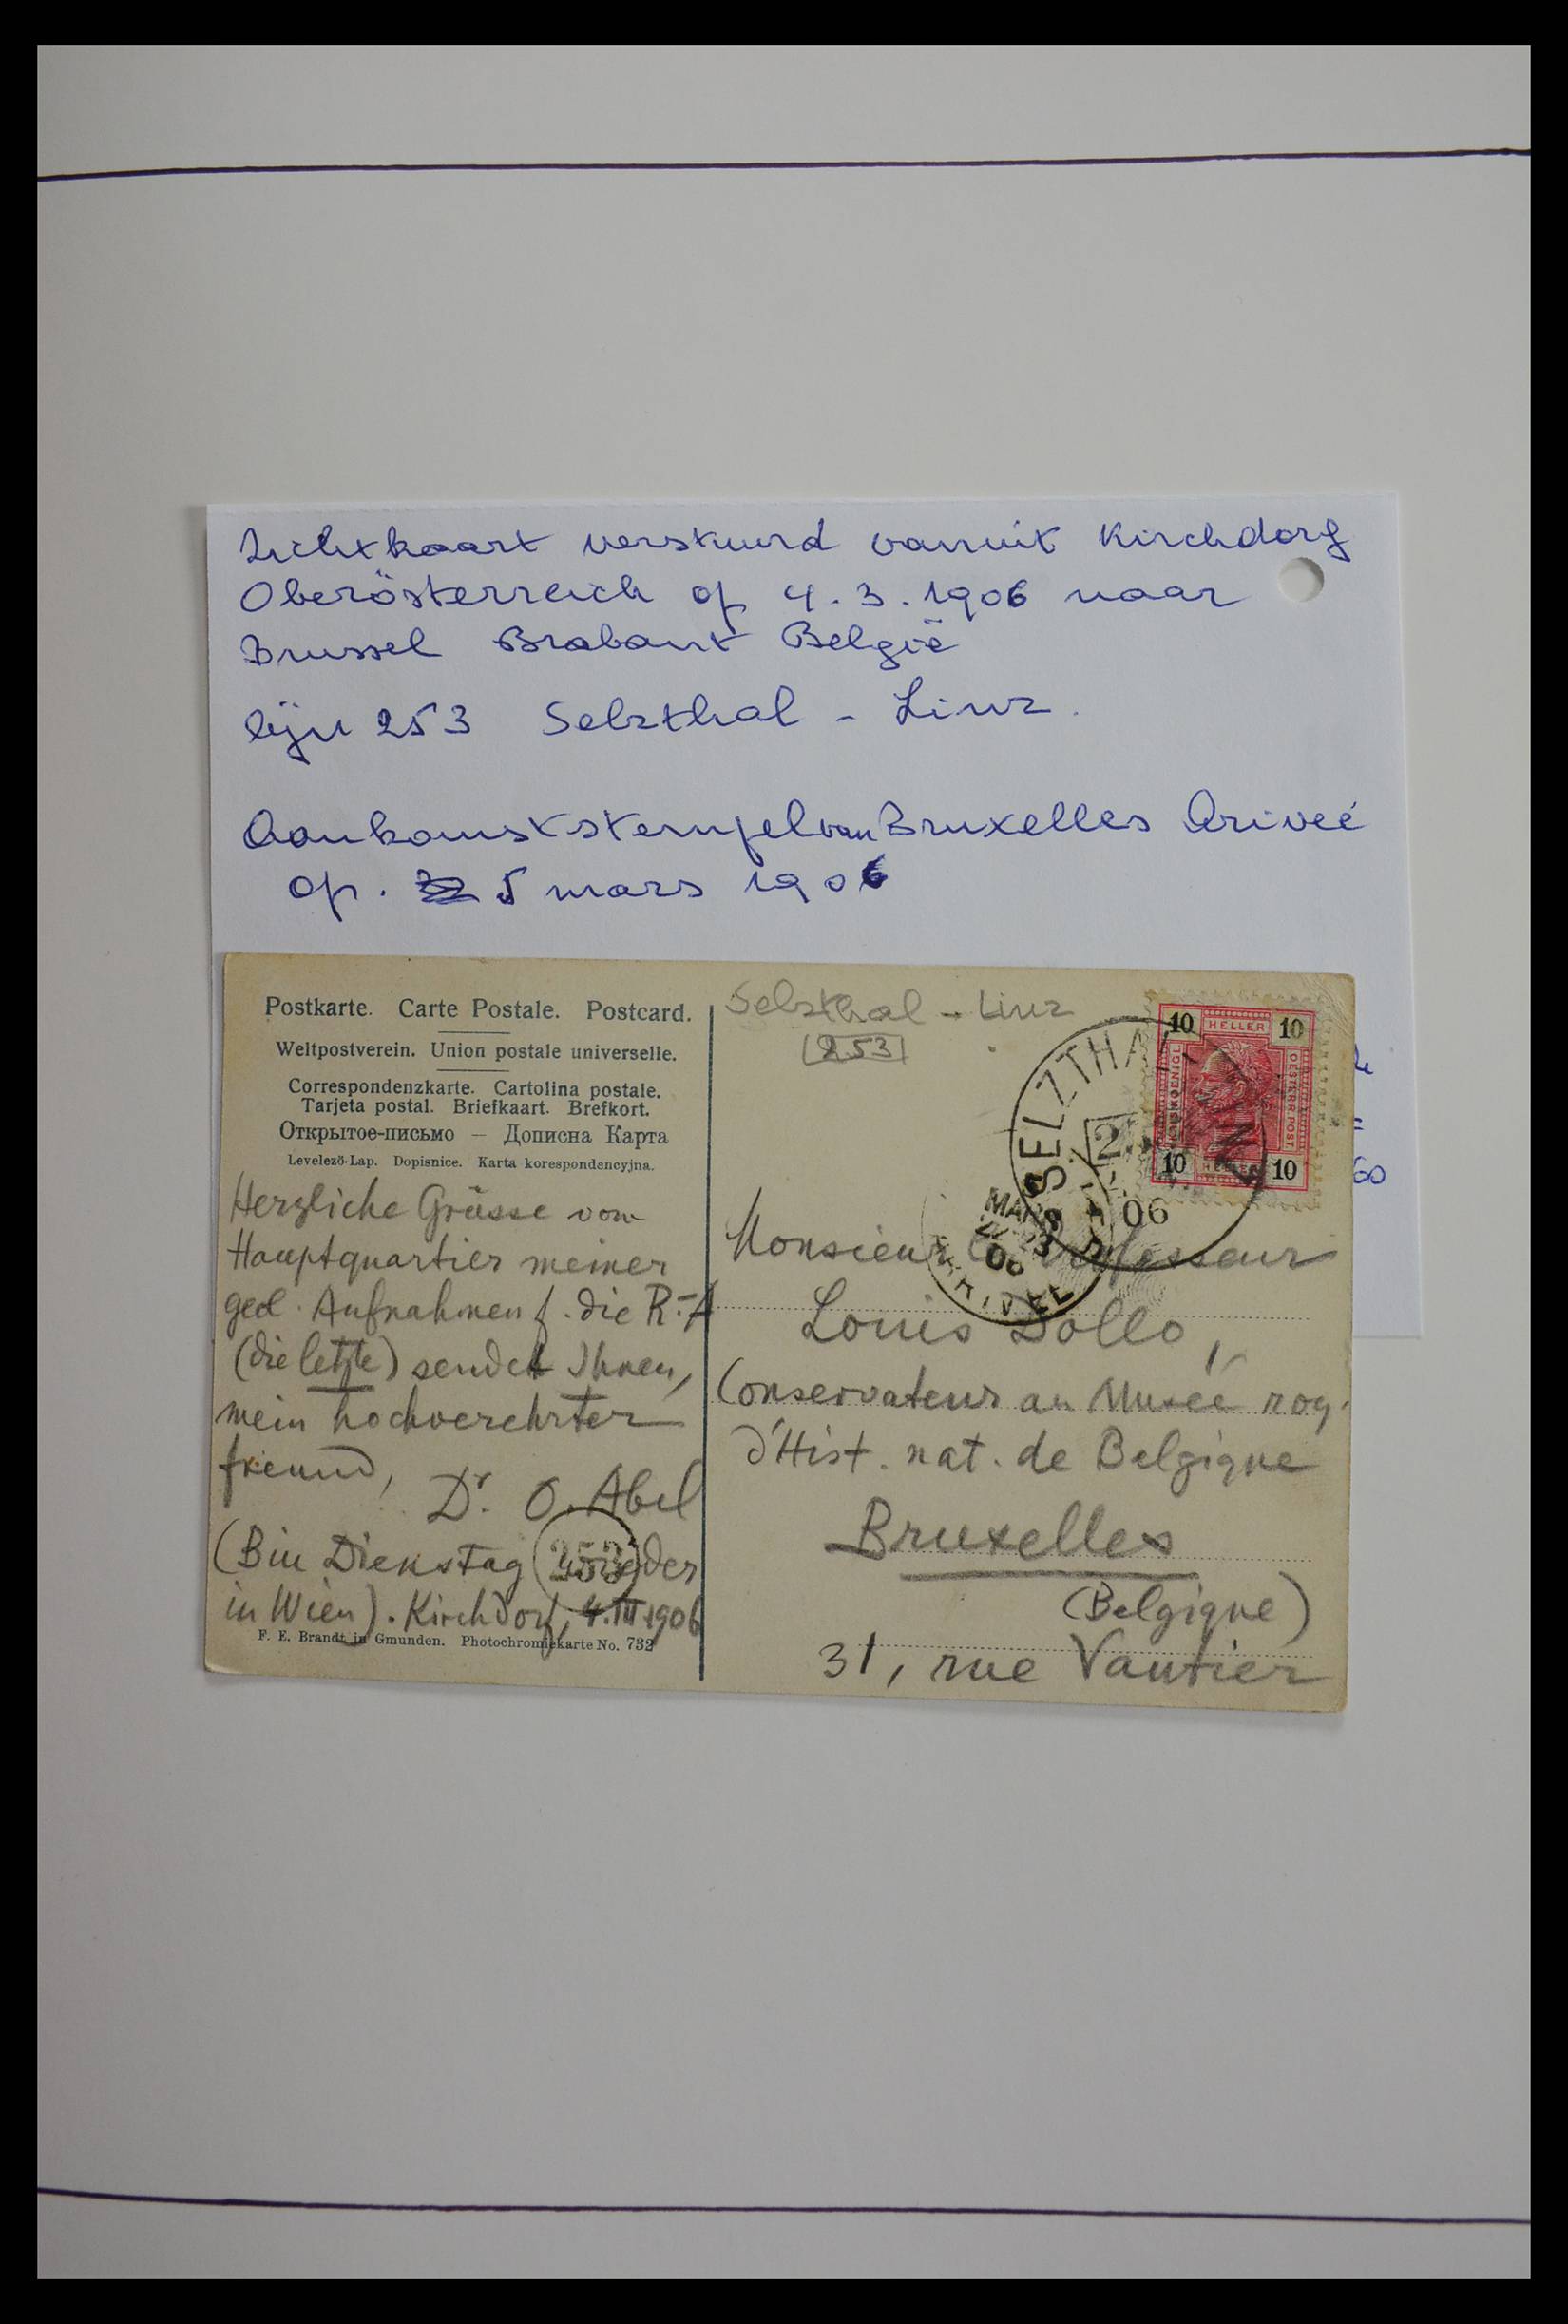 Zichtkaart verstuurd vanuit Kirchdorf
Oberösterreich op 4.3.1906 naar
Brussel Brabant België
lijn 253 Selzthal - Linz.
Aankomststempel van Bruxelles Ariveé
op. 5 mars 1906
60
Postkarte. Carte Postale. Postcard.
Weltpostverein. Union postale universelle.
Correspondenzkarte. Cartolina postale.
Tarjeta postal. Briefkaart. Brefkort.
Открытое-письмо — Дописна Карта
Levelező-Lap. Dopisnice. Karta korespondencyjna.
Herzliche Grüsse vom
Hauptquartier meiner
geol. Aufnahmen f. die R.-A
(die letzte) sendet Ihnen,
mein hochverehrter
Freund,
Dr. O. Abel
(Bin Dienstag wieder
in Wien). Kirchdorf, 4.III.1906
253
F. E. Brandt in Gmunden. Photochromiekarte No. 732
Selzthal - Linz
253
10 HELLER 10
KAISERKOENIGL
OESTERR.POST
10 HELLER 10
SELZTHAL
06
MARS
06
Monsieur le Professeur
Louis Dollo,
Conservateur au Musée roy.
d'Hist. nat. de Belgique
Bruxelles
(Belgique)
31, rue Vautier